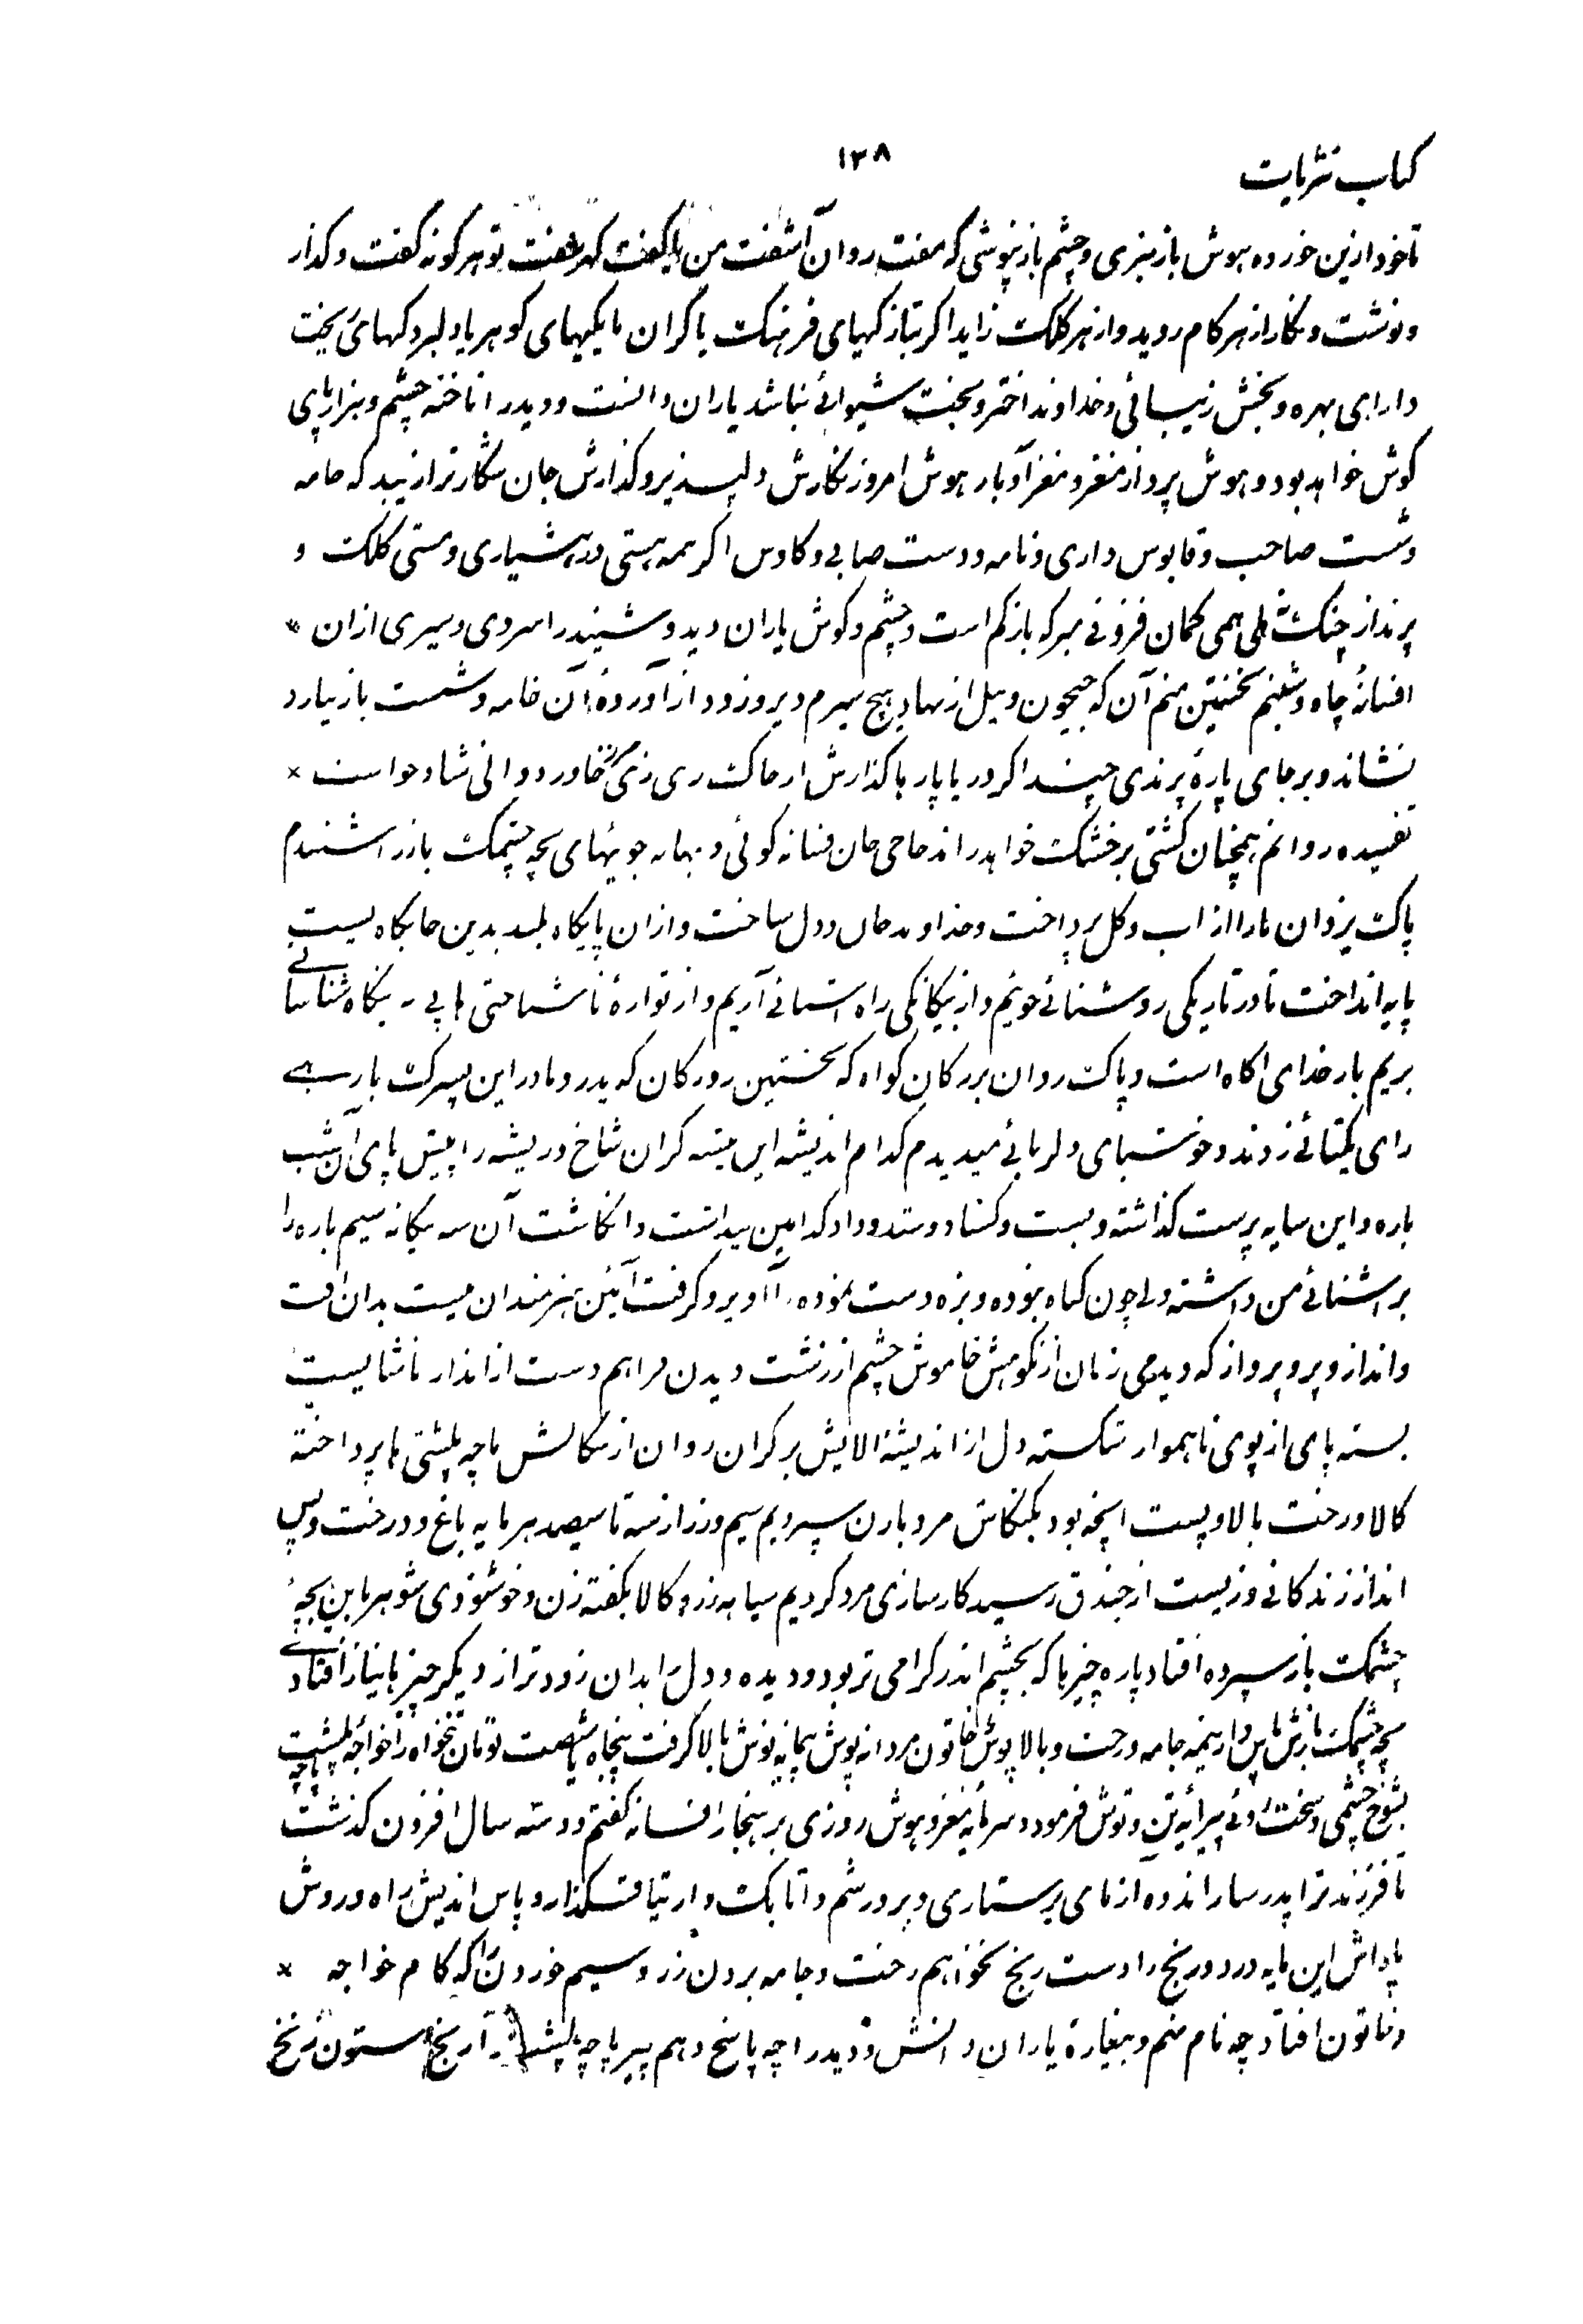 کتاب نثریات
۱۳۸
تا خود ازین خورده هوش باز نبری و چشم باز نپوشی که مفت روان آشفت من یا گفت تو هر گونه گفت و گذار
و نوشت و نگار از هر کام روید و از هر کلک زاید اگر بتازگیهای فرهنگ یا گران مایگیهای گوهر یا دلبردگیهای بخت
دارای بهره و بخش زیبائی و خداوند اختر و بخت شیوائی نباشد یاران دانست و دید را ناخنه چشم و هزار پای
گوش خواهد بود و هوش پرداز مغز و مغز آوبار هوش امروز نگارش دلپسند پذیر و گذارش جان شکارتر از نبید که خامه
دشت صاحب و قابوس داری و نامه و دست صابی و کاوس اگر همه هستی در هشیاری و مستی کلک و
پرند از چنگ هلی همی گمان فزونی مبر که باز کم است و چشم و گوش یاران دید و شنید را سردی و سیری از آن
افسانهٔ چاه و شبنم نخستین منم آن که جیحون و نیل از نهاد هیچ سیرم دیروز و دا از آورده آن خامه و شست باز نیارد
نشاند و بر جای پارهٔ پرندی چند اگر دریا پار با گذارش خاور دوانی شاد خواست
تفسیده روانم همچنان کشتی بر خشک خواهد راند حاجی خان فسانه گوئی و بهانه جوئیهای بچه چشمک باز را شنیدم
پاک یزدان ما را از آب و گل پرداخت و خداوند جان و دل ساخت و از آن پایگاه بلند بدین جایگاه پست
پایه انداخت تا در تاریکی روشنائی جوئیم و از بیگانگی راه آشنائی آریم و از توارهٔ ناشناختی ها پی بر بنگاه شناسائی
بریم بار خدای آگاه است و پاک روان بزرگان گواه که نخستین روزگان که پدر و مادر این پسرک بارے
رای یکتائی زدند و خوستهای دلربائی میدیدم کدام اندیشه این تیشه گران شاخ و ریشه را پیش پای آن شب
باره و این سایه پرست گذاشته و بست و گشاد و ستد و داد کدامین پنداشت و انگاشت آن سه بیگانه سیم باره را
بر آشنائی من داشته ولی چون گناه نبوده و بزه دست ننموده آویز و گرفت آئین هنرمندان نیست بدان افت
و انداز و پر و پرواز که دیدمی زبان از نکوهش خاموش چشم از زشت دیدن فراهم دست از انداز ناشایست
بسته پای از پوی ناهموار شکسته دل از اندیشهٔ آلایش بر کران روان از سگالش پاچه پلشتی ها پرداخته
کالا و رخت بالا و پست آنچه بود بکنگاش مرد بازن سپردیم سیم و زر از سه تا سیصد هر مایه باغ و درخت و پس
انداز زندگانی و زیست از جندق رسید کارسازی مرد کردیم سیاهه زر و کالا بگفته زن و خوشنودی شوهر باین بچهٔ
چشمک باز سپرده افتاد پاره چیزها که بچشم اندر گرامی تر بود و دیده و دل را بدان زودتر از دیگر چیزها نیاز افتادی
بچه چشمک بازش پس از نیمه جامه و رخت و بالا پوش خاتون مردانه پوش پیمانه نوش بالا گرفت پنجاه یا شصت تومان تنخواه را خواجه پلشت پاچه
بشوخ چشمی و سخت روئی پیرایه تن و توش فرمود و سرمایه مغز و هوش روزی بر هنجار افسانه گفتم دو سه سال افزون گذشت
تا فرزند ترا پدرسار اندوه آزمای پرستاری و پرورشم و اتابک وار تیافت گذار و پاس اندیش راه و روش
پاداش این مایه درد و رنج را دست رنج نخواهم رخت و جامه بردن زر و سیم خوردن را که کام خواجه
و خاتون افتاد چه نام نهم و بیغارهٔ یاران دانش و دید را چه پاسخ دهم پیر پاچه پلشت آرنج ستون زنخ